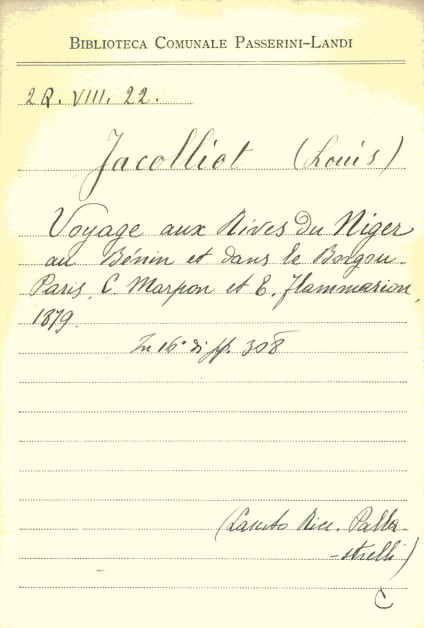 BIBLIOTECA COMUNALE PASSERINI-LANDI
2Q. VIII. 22.
Jacolliot (Louis)
Voyage aux Rives du Niger
au Bénin et dans le Borgou
Paris, C. Marpon et E. Flammarion,
1879.
In 16° di pp. 308
(Lascito Ricc. Palla-
-strelli)
C